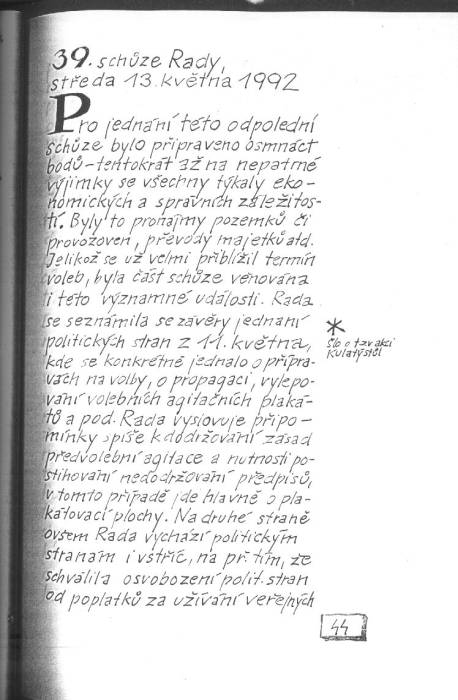 39. schůze Rady,
středa 13. května 1992
Pro jednání této odpolední
schůze bylo připraveno osmnáct
bodů – tentokrát až na nepatrné
výjimky se všechny týkaly eko-
nomických a správních záležitos-
tí. Byly to pronájmy pozemků či
provozoven, převody majetků atd.
Jelikož se už velmi přiblížil termín
voleb, byla část schůze věnována
i této významné události. Rada
se seznámila se závěry jednání
politických stran z 11. května,
kde se konkrétně jednalo o přípra-
vách na volby, o propagaci, vylepo-
vání volebních agitačních plaká-
tů a pod. Rada vyslovuje připo-
mínky spíše k dodržování zásad
předvolební agitace a nutnosti po-
stihování nedodržování předpisů,
v tomto případě jde hlavně o pla-
kátovací plochy. Na druhé straně
ovšem Rada vychází politickým
stranám i vstříc, na př. tím, že
schválila osvobození polit. stran
od poplatků za užívání veřejných
*
šlo o tzv akci
Kulatý stůl
44